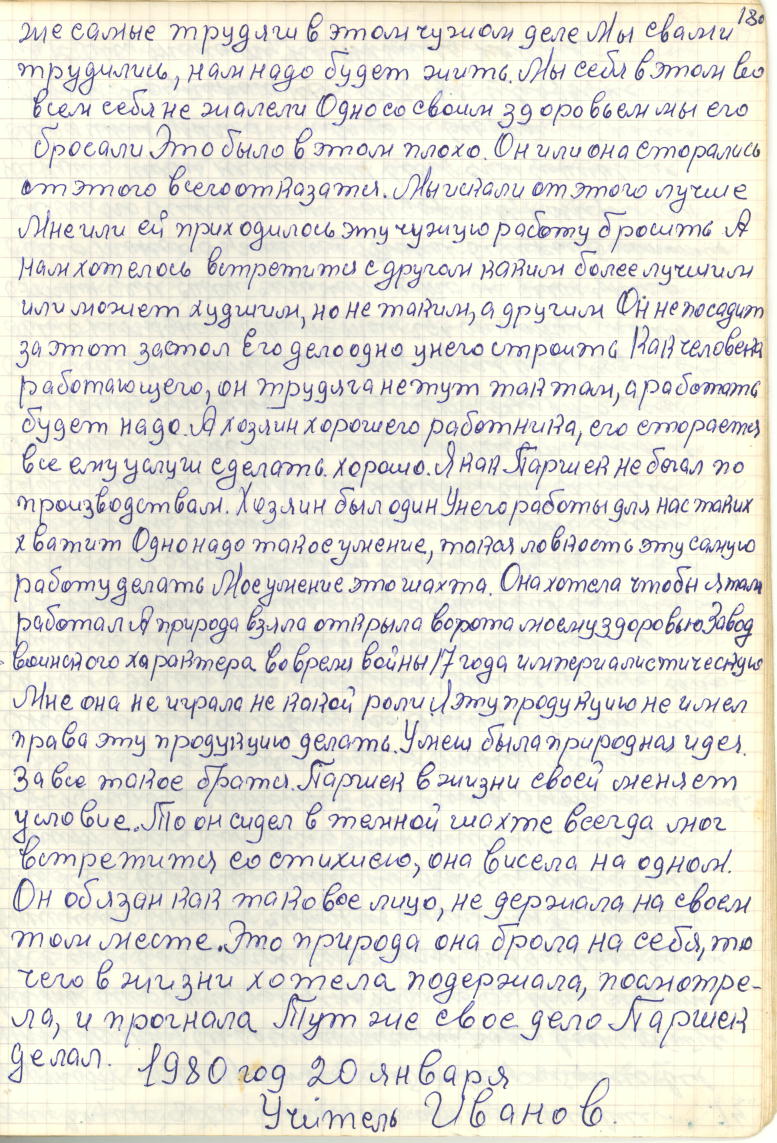 180
же самые трудяги в этом чужом деле Мы с вами
трудились, нам надо будет жить. Мы себя в этом во
всем себя не жалели Одно со своим здоровьем мы его
бросали Это было в этом плохо. Он или она сторались
от этого всего отказатся. Мы искали от этого лучше
Мне или ей приходилось эту чужую работу бросить А
нам хотелось встретится с другом каким более лучшим
или может худшим, но не таким, а другим Он не посадит
за этот застол Его дело одно у него строить Как человека
работающего, он трудяга не тут так там, а работать
будет надо. А хозяин хорошего работника, его сторается
все ему услуги сделать хорошо. Я как Паршек не бегал по
производствам. Хозяин был один У него работы для нас таких
хватит Одно надо такое умение, такая ловкость эту самую
работу делать Мое умение это шахта. Она хотела чтобы я там
работал А природа взяла открыла ворота моему здоровью Завод
воинского характера во время войны 17 года империалистическую
Мне она не играла не какой роли Я эту продукцию не имел
права эту продукцию делать. У меня была природная идея.
За все такое братся. Паршек в жизни своей меняет
условие. То он сидел в темной шахте всегда мог
встретится со стихиею, она висела на одном.
Он обязан как таковое лицо, не держала на своем
том месте. Это природа она брола на себя, то
чего в жизни хотела подержала, посмотре-
ла, и прогнала Тут же свое дело Паршек
делал. 1980 год 20 января
Учитель Иванов.